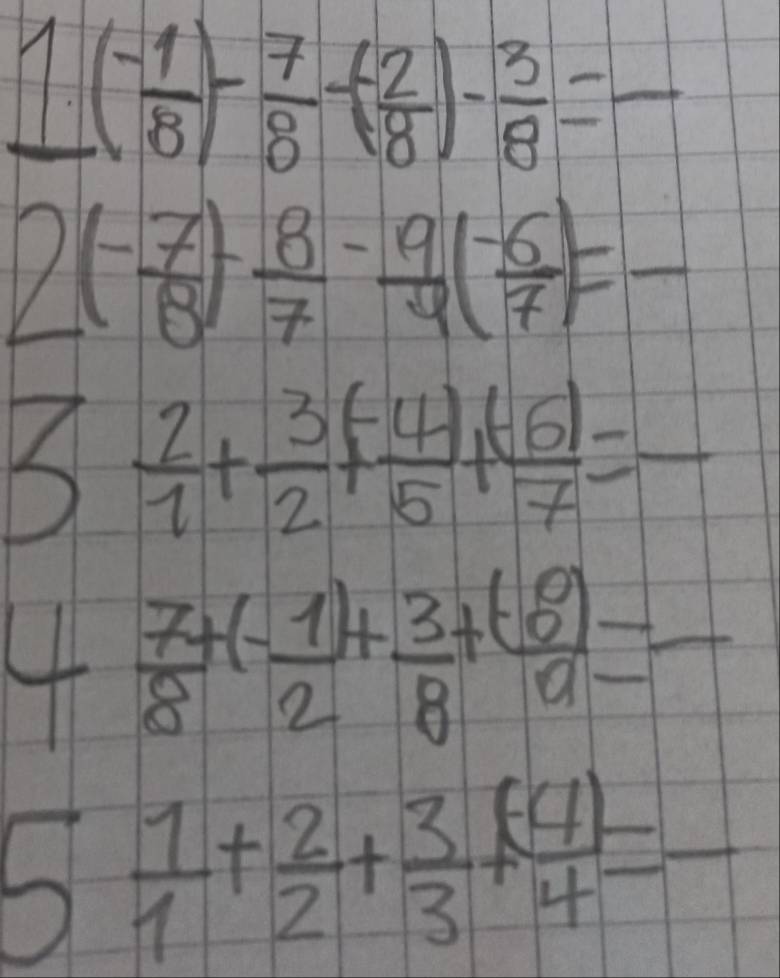 1. (-1/8) - 7/8 - (-2/8) - 3/8 = —
2 (-7/8) - 8/7 - 9/9 (-6/7) = —
3 2/1 + 3/2 + (-4/5) + (-6/7) = —
4 7/8 + (-1/2) + 3/8 + (-8/9) = —
5 1/1 + 2/2 + 3/3 + (-4/4) = —